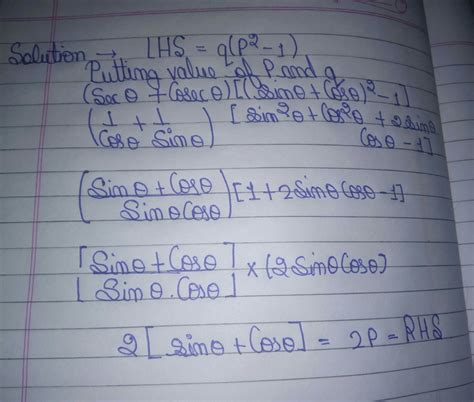 Solution → LHS = q(P²-1)
Putting value of P and q
(Sec θ + Cosec θ) [(Sinθ + Cosθ)² - 1]
(1/Cosθ + 1/Sinθ) [Sin²θ + Cos²θ + 2Sinθ
Cosθ - 1]
(Sinθ + Cosθ/SinθCosθ) [1 + 2SinθCosθ - 1]
[Sinθ + Cosθ/Sinθ.Cosθ] × (2SinθCosθ)
2[Sinθ + Cosθ] = 2P = RHS